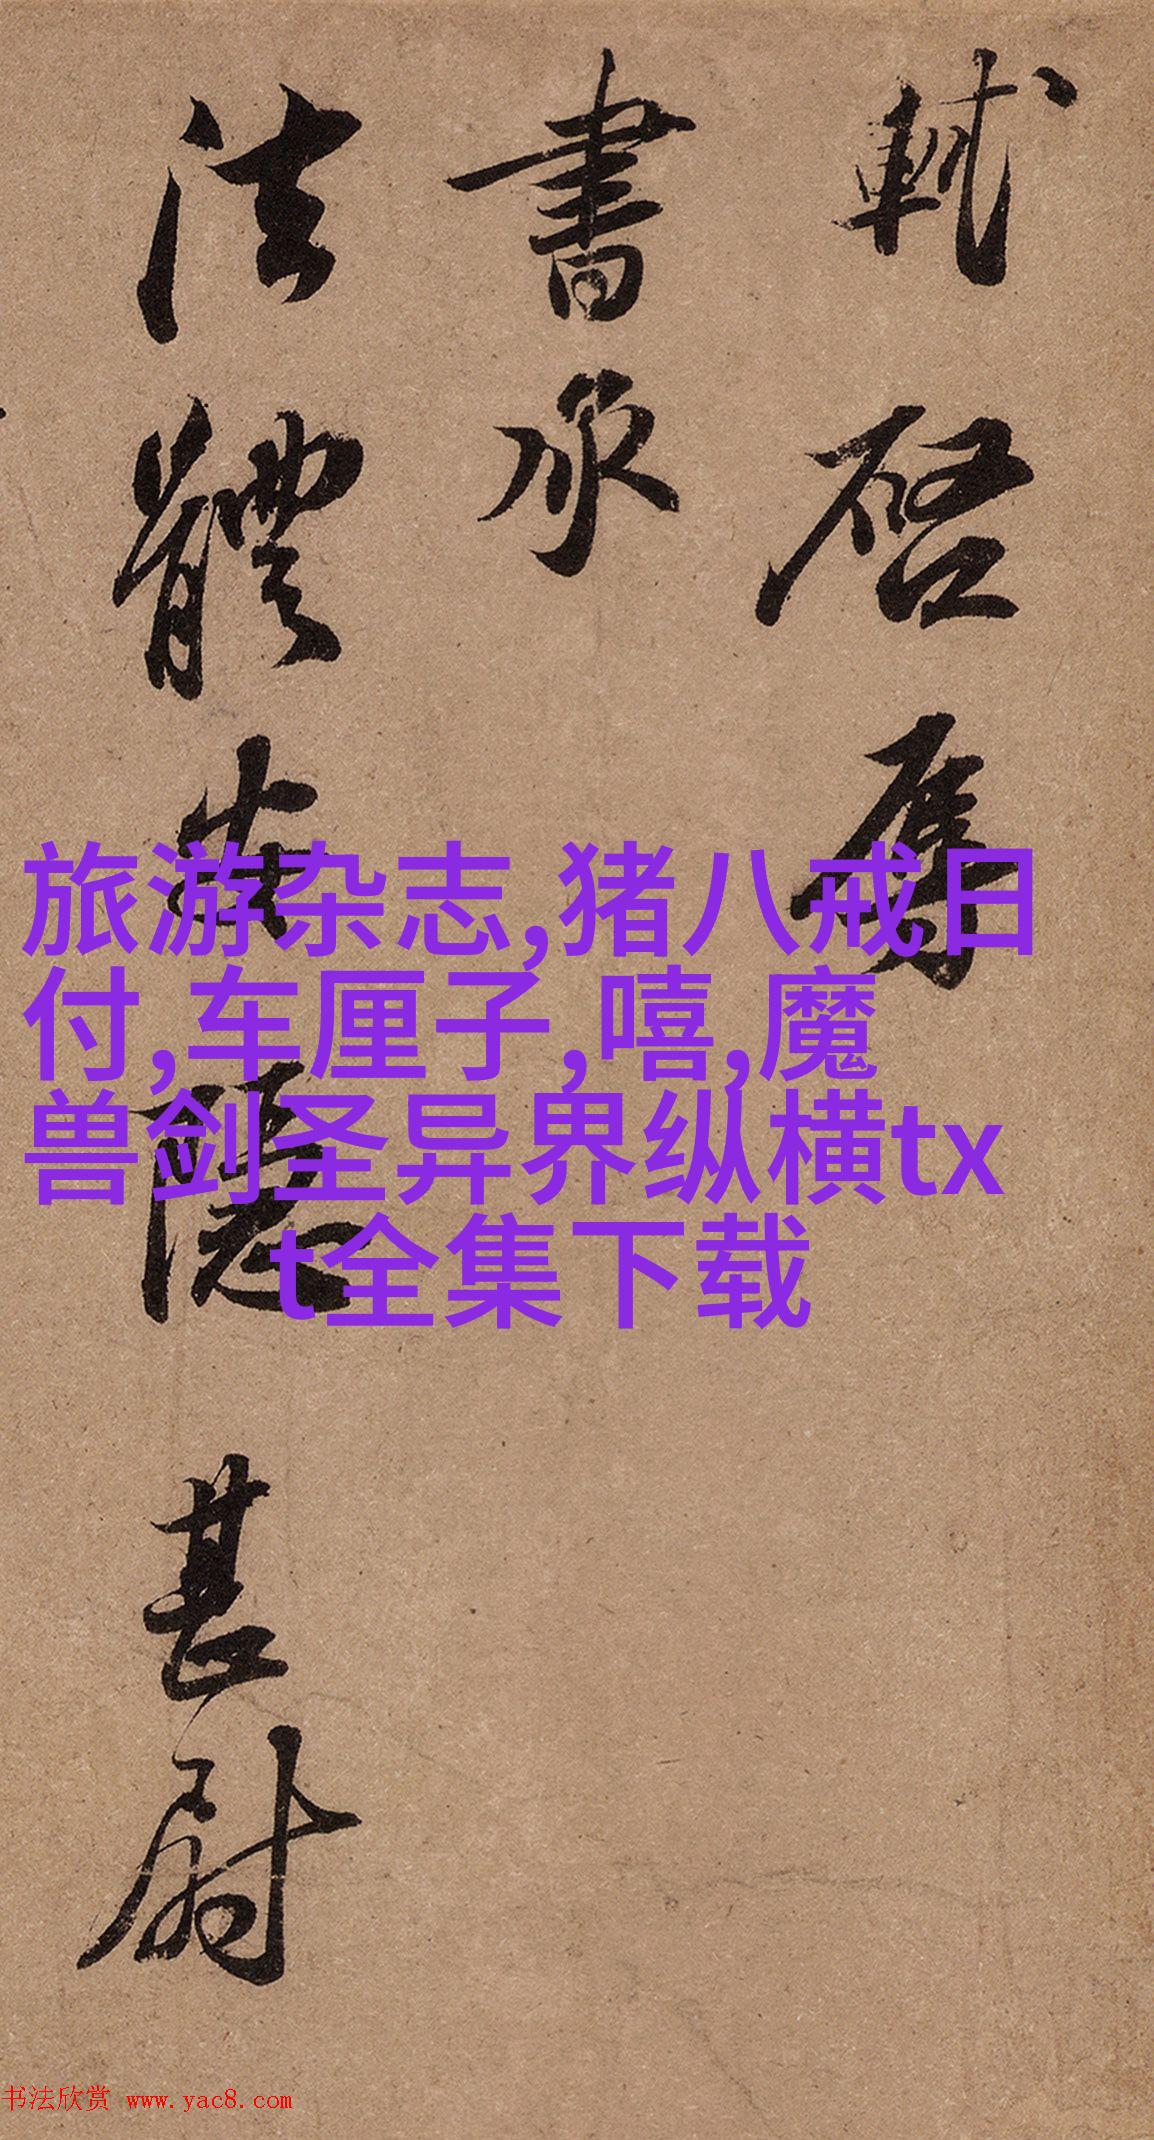 軾啓辱
書承
法體安隱甚慰
旅游杂志,猪八戒日
付,车厘子,嘻,魔
兽剑圣异界纵横tx
t全集下载
书法欣赏 www.yac8.com